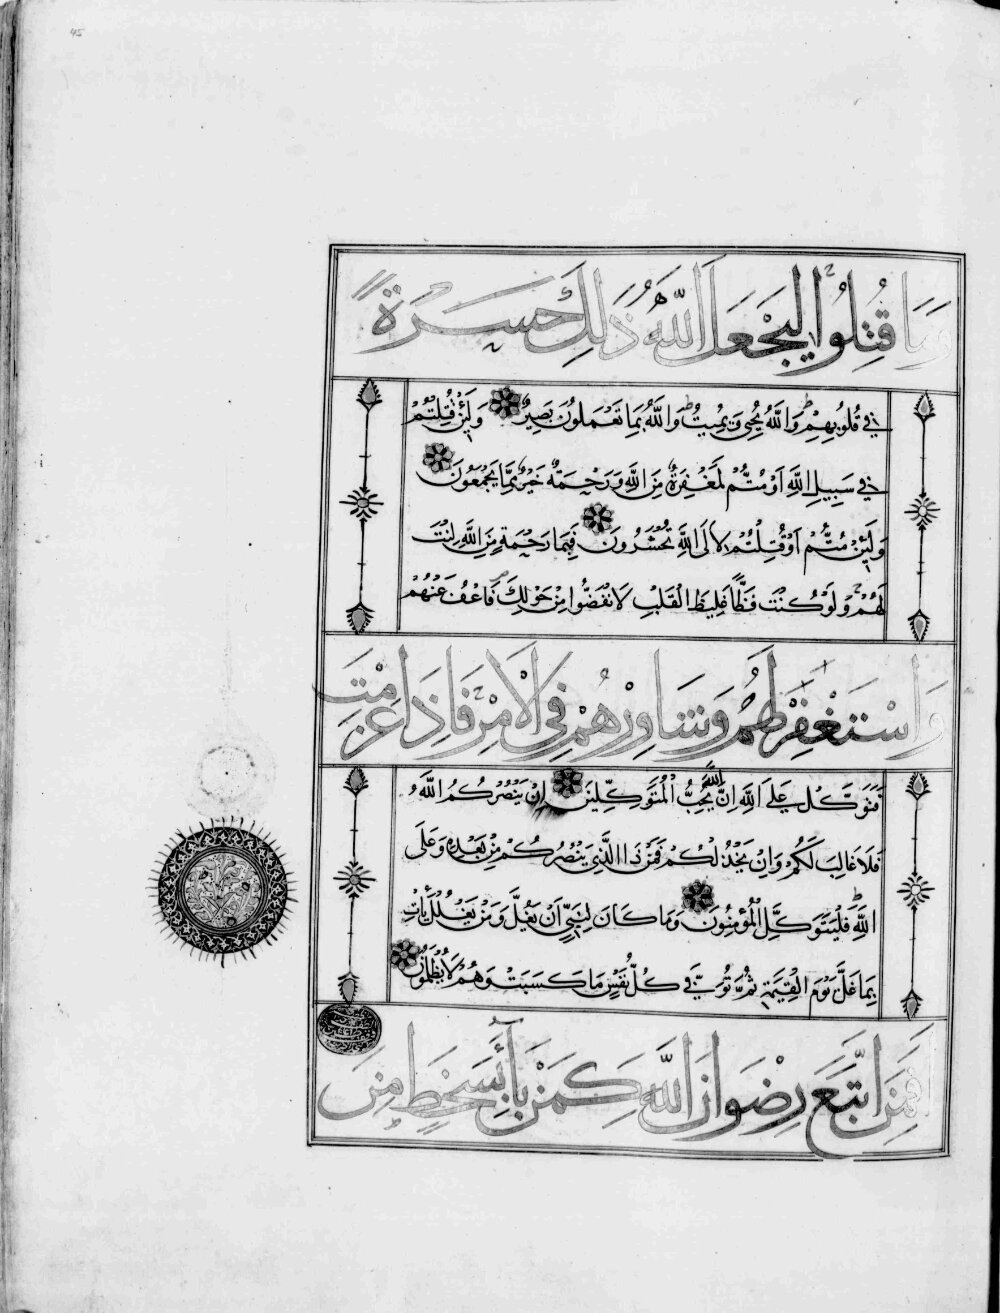 45
وَمَا قُتِلُوا لِيَجْعَلَ اللَّهُ ذَلِكَ حَسْرَةً
فِي قُلُوبِهِمْ وَاللَّهُ يُحْيِي وَيُمِيتُ وَاللَّهُ بِمَا تَعْمَلُونَ بَصِيرٌ وَلَئِنْ قُتِلْتُمْ
فِي سَبِيلِ اللَّهِ أَوْ مُتُّمْ لَمَغْفِرَةٌ مِنَ اللَّهِ وَرَحْمَةٌ خَيْرٌ مِمَّا يَجْمَعُونَ
وَلَئِنْ مُتُّمْ أَوْ قُتِلْتُمْ لَإِلَى اللَّهِ تُحْشَرُونَ فَبِمَا رَحْمَةٍ مِنَ اللَّهِ لِنْتَ
لَهُمْ وَلَوْ كُنْتَ فَظًّا غَلِيظَ الْقَلْبِ لَانْفَضُّوا مِنْ حَوْلِكَ فَاعْفُ عَنْهُمْ
وَاسْتَغْفِرْ لَهُمْ وَشَاوِرْهُمْ فِي الْأَمْرِ فَإِذَا عَزَمْتَ
فَتَوَكَّلْ عَلَى اللَّهِ إِنَّ اللَّهَ يُحِبُّ الْمُتَوَكِّلِينَ إِنْ يَنْصُرْكُمُ اللَّهُ
فَلَا غَالِبَ لَكُمْ وَإِنْ يَخْذُلْكُمْ فَمَنْ ذَا الَّذِي يَنْصُرُكُمْ مِنْ بَعْدِهِ وَعَلَى
اللَّهِ فَلْيَتَوَكَّلِ الْمُؤْمِنُونَ وَمَا كَانَ لِنَبِيٍّ أَنْ يَغُلَّ وَمَنْ يَغْلُلْ يَأْتِ
بِمَا غَلَّ يَوْمَ الْقِيَمَةِ ثُمَّ تُوَفَّى كُلُّ نَفْسٍ مَا كَسَبَتْ وَهُمْ لَا يُظْلَمُونَ
أَفَمَنِ اتَّبَعَ رِضْوَانَ اللَّهِ كَمَنْ بَاءَ بِسَخَطٍ مِنَ